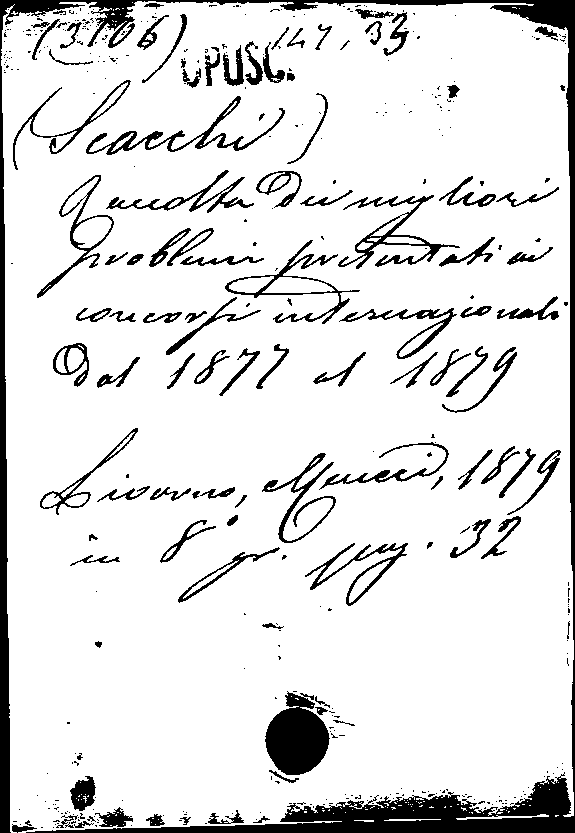 (3106) 147, 33.
OPUSC.
(Scacchi)
Raccolta dei migliori
problemi presentati ai
concorsi internazionali
dal 1877 al 1879
Livorno, Meucci, 1879
in 8° gr. pag. 32